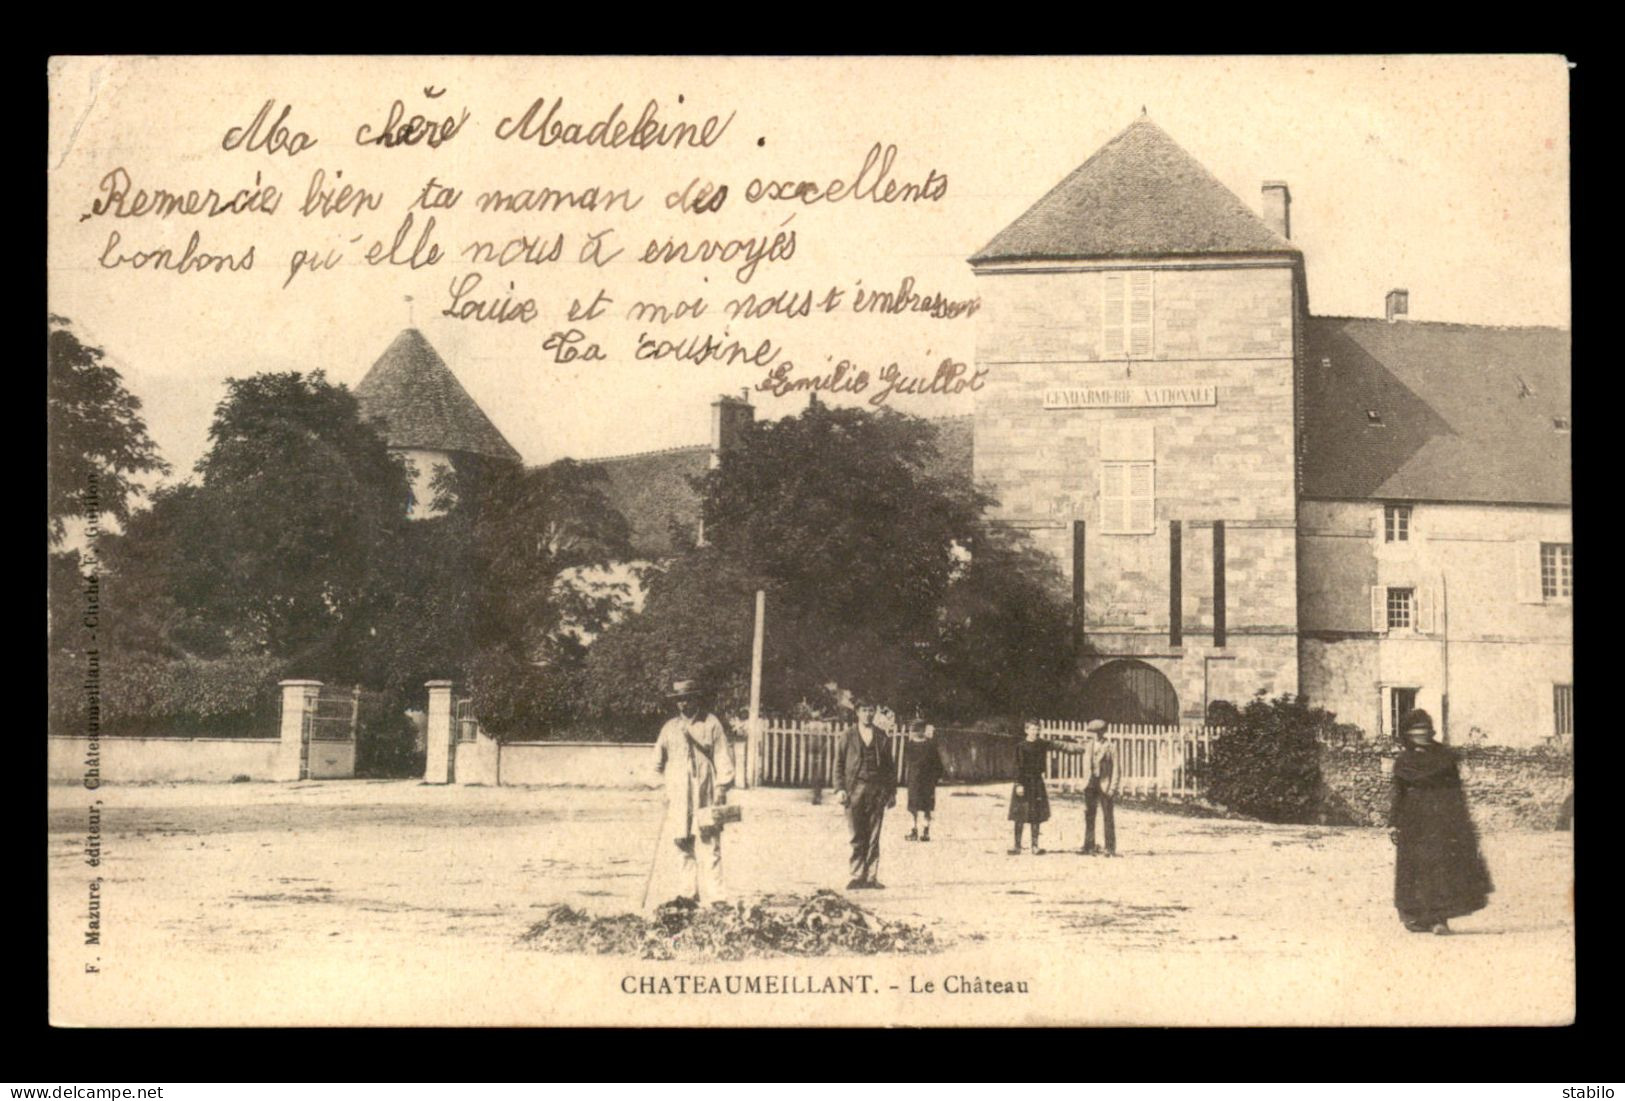 Ma chère Madeleine.
Remercie bien ta maman des excellents
bonbons qu'elle nous à envoyés
Louise et moi nous t'embrassons
Ta cousine
Emilie Guillot
GENDARMERIE NATIONALE
F. Mazure, éditeur, Châteaumeillant - Cliché F. Guillon
CHATEAUMEILLANT. - Le Château
www.delcampe.net
stabilo